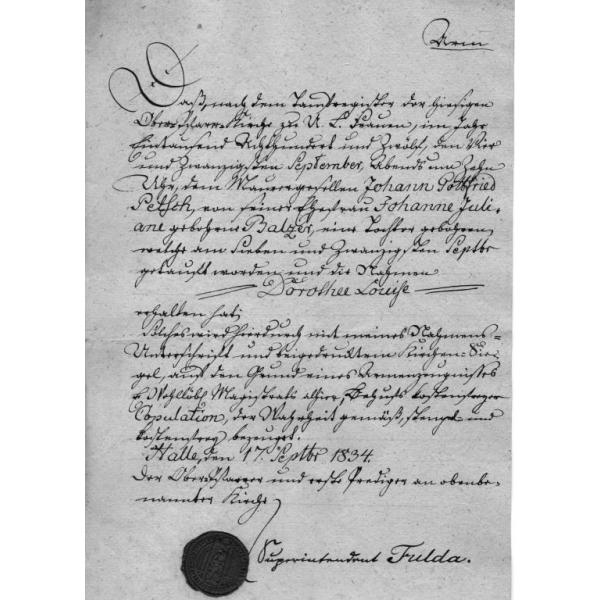 Arm
Daß, nach dem Taufregister der hiesigen
Oberpfarr-Kirche zu U. L. Frauen, im Jahr
Eintausend Achthundert und Zwölf, den Vier
und Zwanzigsten September, Abends um Zehn
Uhr, dem Maurergesellen Johann Gottfried
Petsch, von seiner Ehefrau Johanne Juli-
ane geborene Balzer, eine Tochter geboren,
welche am Sieben und Zwanzigsten Septbr
getauft worden und die Nahmen
Dorothee Louise
erhalten hat;
Solches wird hierdurch mit meines Nahmens-
Unterschrift und beigedrucktem Kirchen-Sie-
gel, auf den Grund eines Armenzeugnisses
Wohllöbl. Magistrats allhier, Behufs kostenfreyer
Copulation, der Wahrheit gemäß, stempel und
kostenfrey bezeuget.
Halle, den 17. Septbr 1834.
Der Oberpfarrer und erste Prediger an obenbe-
nannter Kirche
Superintendent Fulda.